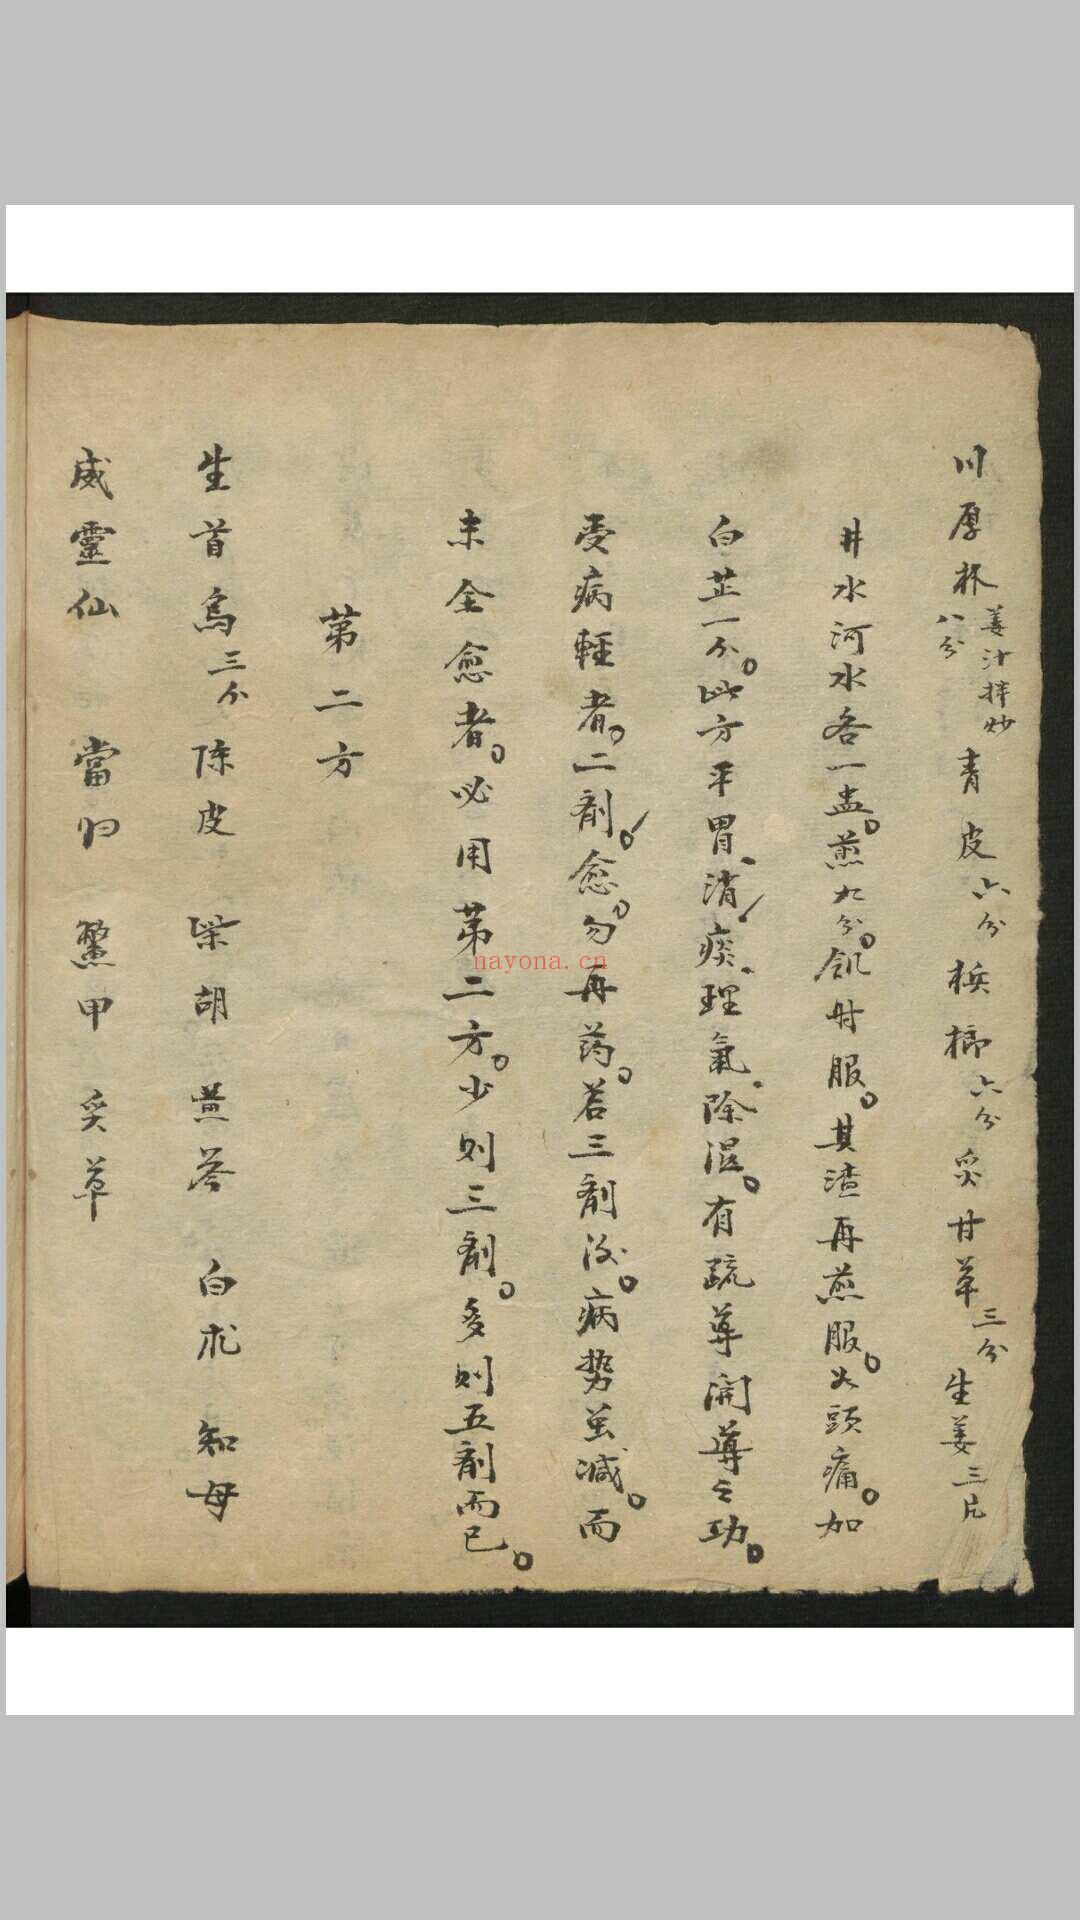 川厚朴姜汁拌炒八分青皮六分梹榔六分炙甘草三分生姜三片
井水河水各一盅。煎九分。飢时服。其渣再煎服。如頭痛。加
白芷一分。此方平胃、消痰、理氣、除湿。有疏導開導之功。
受病輕者。二剤。愈。勿再药。若三剤後。病势虽减。而
未全愈者。必用第二方。少则三剤。多则五剤而已。
第二方
生首烏三分陈皮 柴胡 黄芩 白朮 知母
威靈仙 當归 鱉甲 炙草
nayona.cn